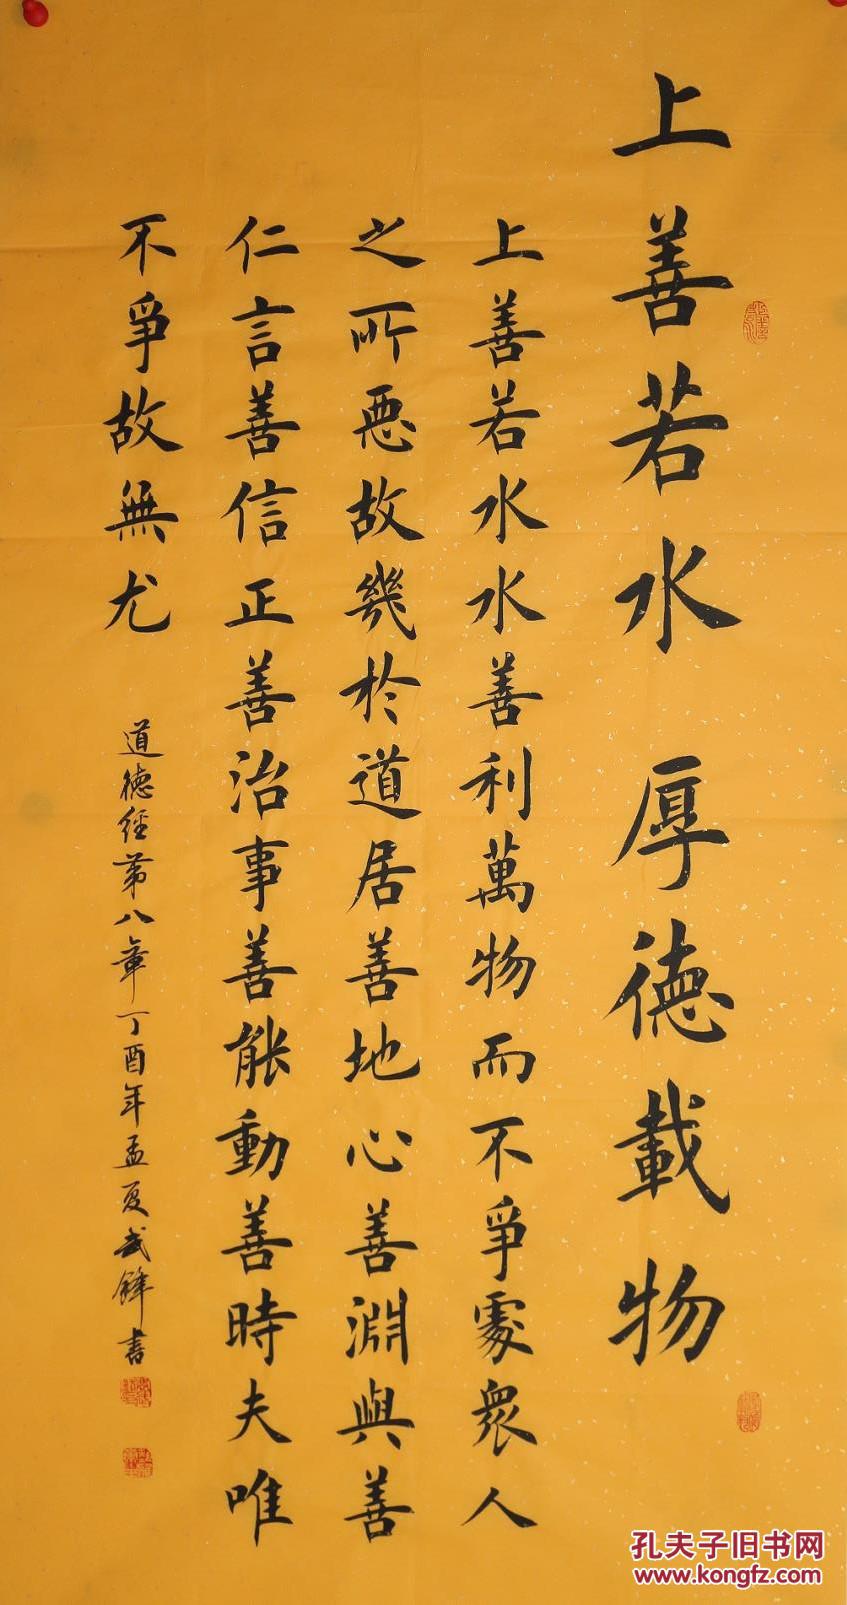 上善若水厚德載物
上善若水水善利萬物而不爭處衆人
之所惡故幾於道居善地心善淵與善
仁言善信正善治事善能動善時夫唯
不爭故無尤
道德經第八章丁酉年孟夏武鋒書
孔夫子旧书网
www.kongfz.com